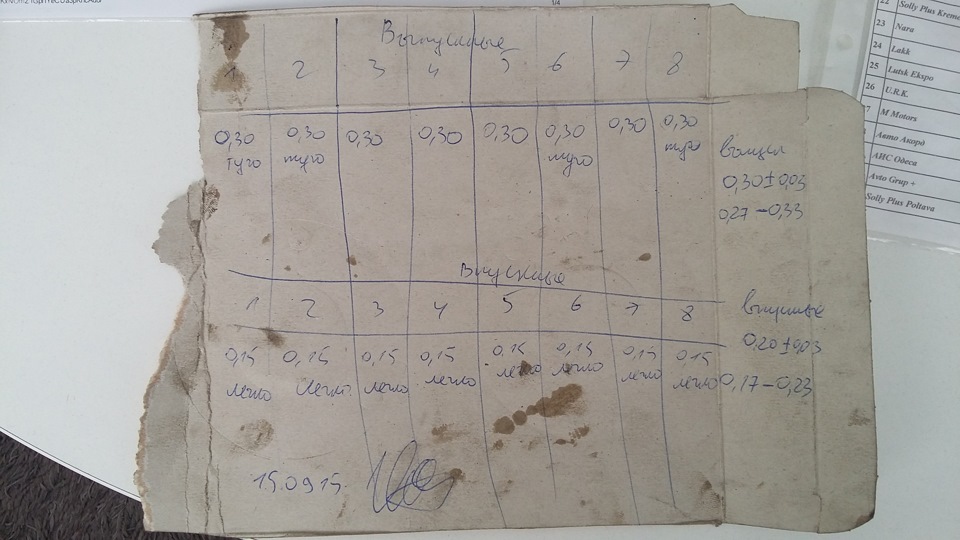 1/4
Выпускные
1 2 3 4 5 6 7 8
0,30 0,30 0,30 0,30 0,30 0,30 0,30 0,30
туго туго туго туго
0,30±0,03
0,27-0,33
Впускные
1 2 3 4 5 6 7 8
0,15 0,15 0,15 0,15 0,15 0,15 0,15 0,15
легко легко легко легко легко легко легко легко
0,20±0,03
0,17-0,23
15.09.15.
22 Solly Plus Kreme
23 Nara
24 Lakk
25 Lutsk Ekspo
26 U.R.K.
7 M Motors
Авто Акорд
АИС Одеса
Avto Grup +
Solly Plus Poltava